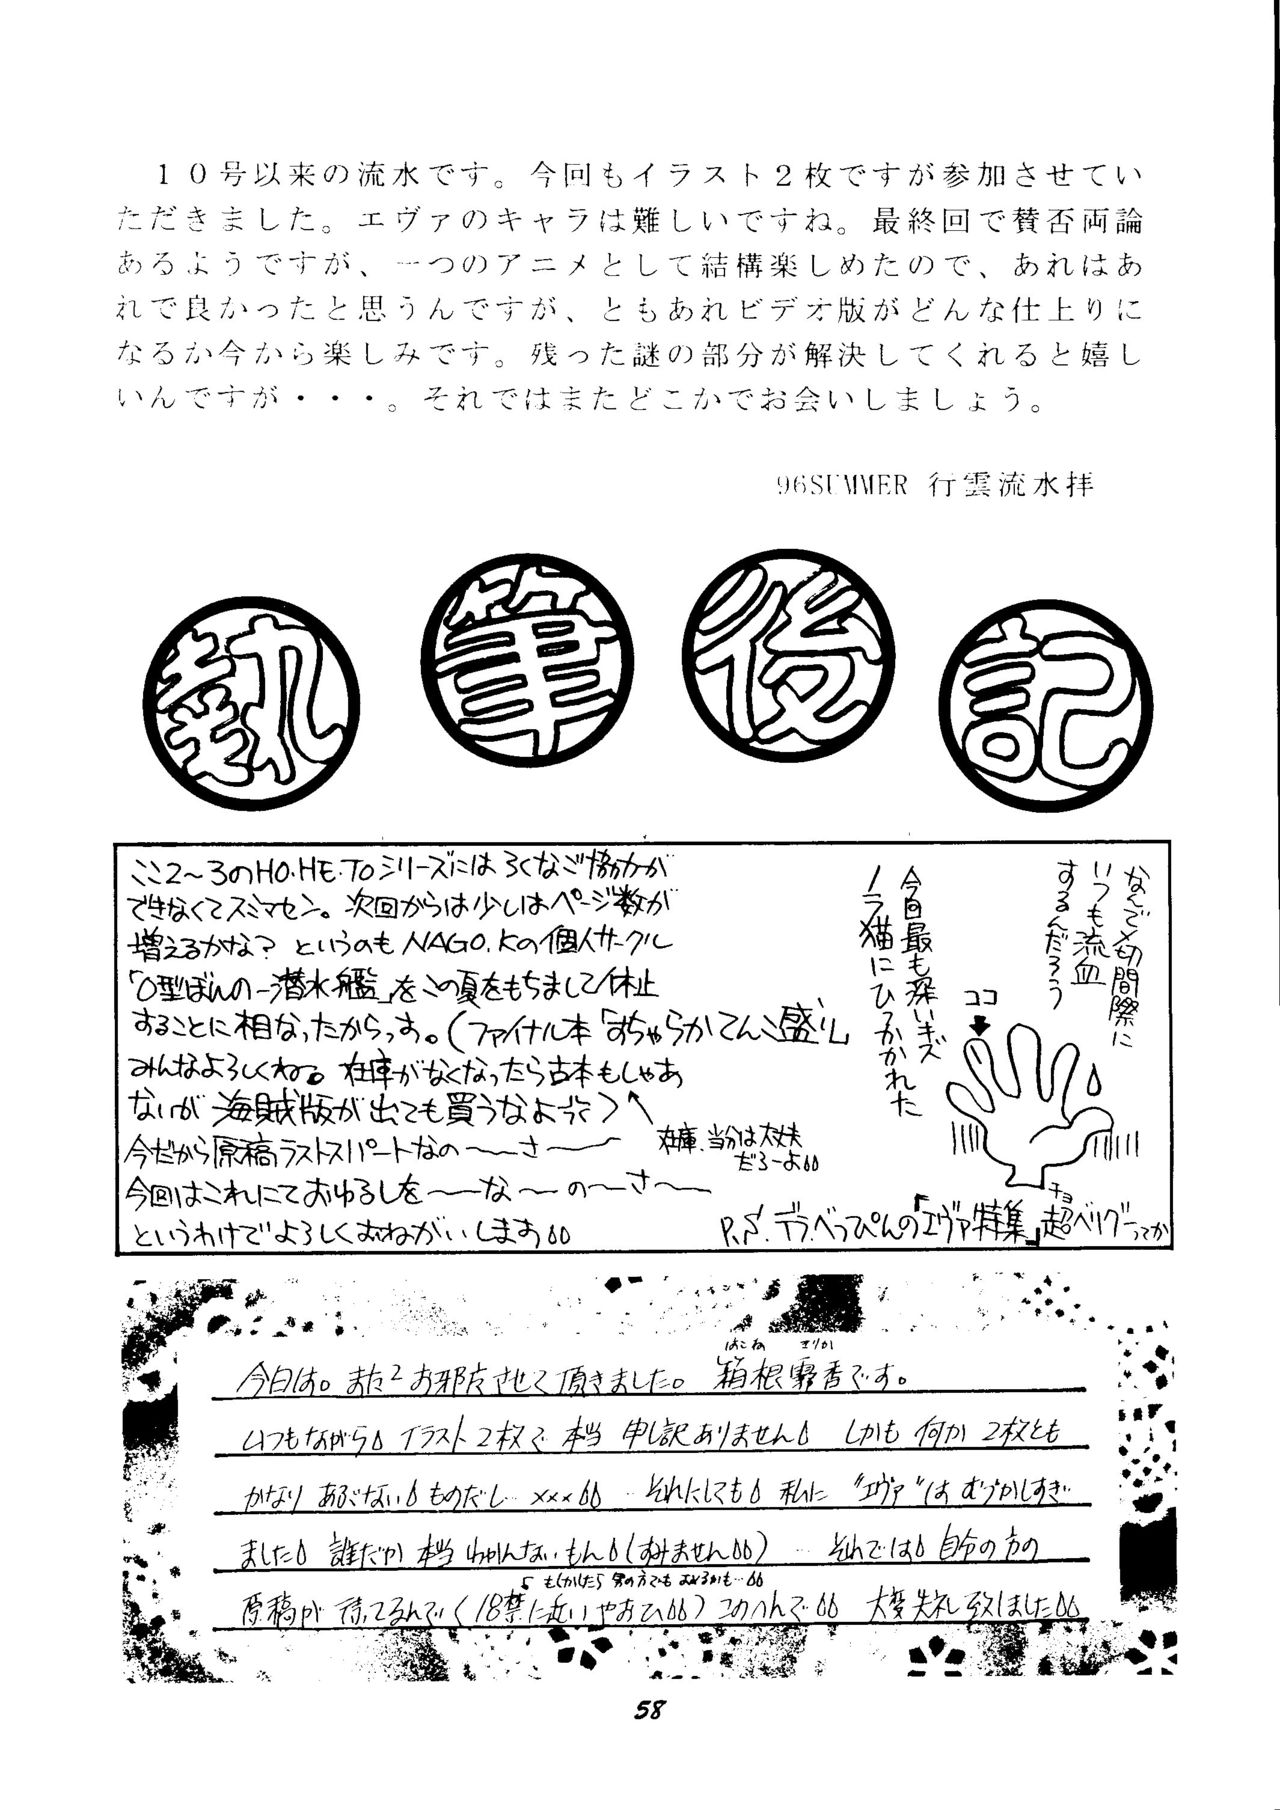 10号以来の流水です。今回もイラスト2枚ですが参加させてい
ただきました。エヴァのキャラは難しいですね。最終回で賛否両論
あるようですが、一つのアニメとして結構楽しめたので、あれはあ
れで良かったと思うんですが、ともあれビデオ版がどんな仕上りに
なるか今から楽しみです。残った謎の部分が解決してくれると嬉し
いんですが・・・。それではまたどこかでお会いしましょう。
96SUMMER 行雲流水拝
執筆後記
ここ2〜3のHO・HE・TOシリーズにはろくなご協力が
できなくてスミマセン。次回からは少しはページ数が
増えるかな？というのもNAGO.Kの個人サークル
「O型ぼんの一潜水艦」をこの夏をもちまして休止
することに相なったからっす。(ファイナル本「おちゃらかてんこ盛り」
みんなよろしくねる。在庫がなくなったら古本もしゃあ
ないが海賊版が出ても買うなよ)
在庫、当分は大丈夫
だろーよ
今だから原稿ラストスパートなの〜〜さ〜〜
今回はこれにておゆるしを〜〜な〜の〜さ〜
というわけでよろしくおねがいします
なんで〆切間際に
いつも流血
するんだろう
今回最も深いキズ
ノラ猫にひっかかれた
ココ
P.S.デラべっぴんの「エヴァ特集」超ベリグーってか
チョ
はこね きりか
今日は。また2お邪魔させて頂きました。箱根霧香です。
いつもながらイラスト2枚で本当申し訳ありません しかも何か2枚とも
かなりあぶないものだし…×××…それにしても私に"エヴァ"はむづかしすぎ
ました 誰だか本当わかんないもん(すみません)…それでは自分の方の
もしかしたら男の方でもおえるかも…
原稿が待ってるんで(18禁に近いやおひ)このへんで 大変失礼致しました
58